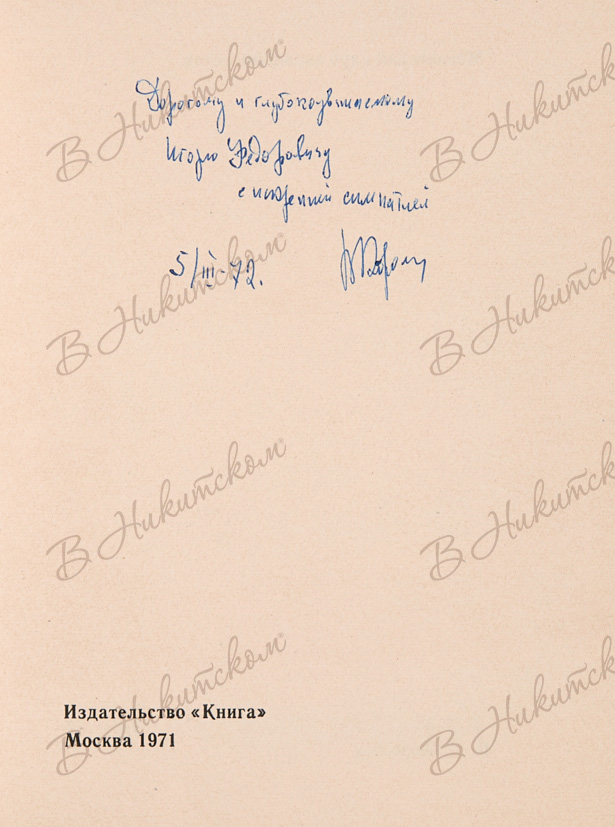 Дорогому и глубокоуважаемому
Игорю Федоровичу
с искренней симпатией
5/III-72.
Издательство «Книга»
Москва 1971
В Никитском
В Никитском
В Никитском
В Никитском
В Никитском
В Никитском
В Никитском
В Никитском